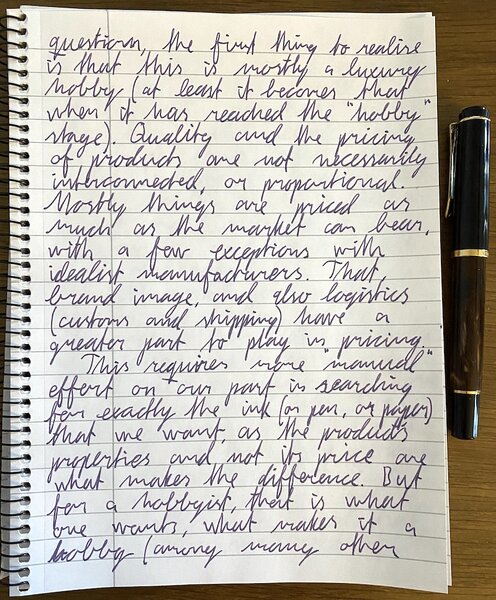 questions, the first thing to realise
is that this is mostly a luxury
hobby (at least it becomes that
when it has reached the "hobby"
stage). Quality and the pricing
of products are not necessarily
interconnected, or proportional.
Mostly things are priced as
much as the market can bear,
with a few exceptions with
idealist manufacturers. That,
brand image, and also logistics
(customs and shipping) have a
greater part to play in pricing.
This requires more "manual"
effort on our part in searching
for exactly the ink (or pen, or paper)
that we want, as the products
properties and not its price are
what makes the difference. But
for a hobbyist, that is what
one wants, what makes it a
hobby (among many other